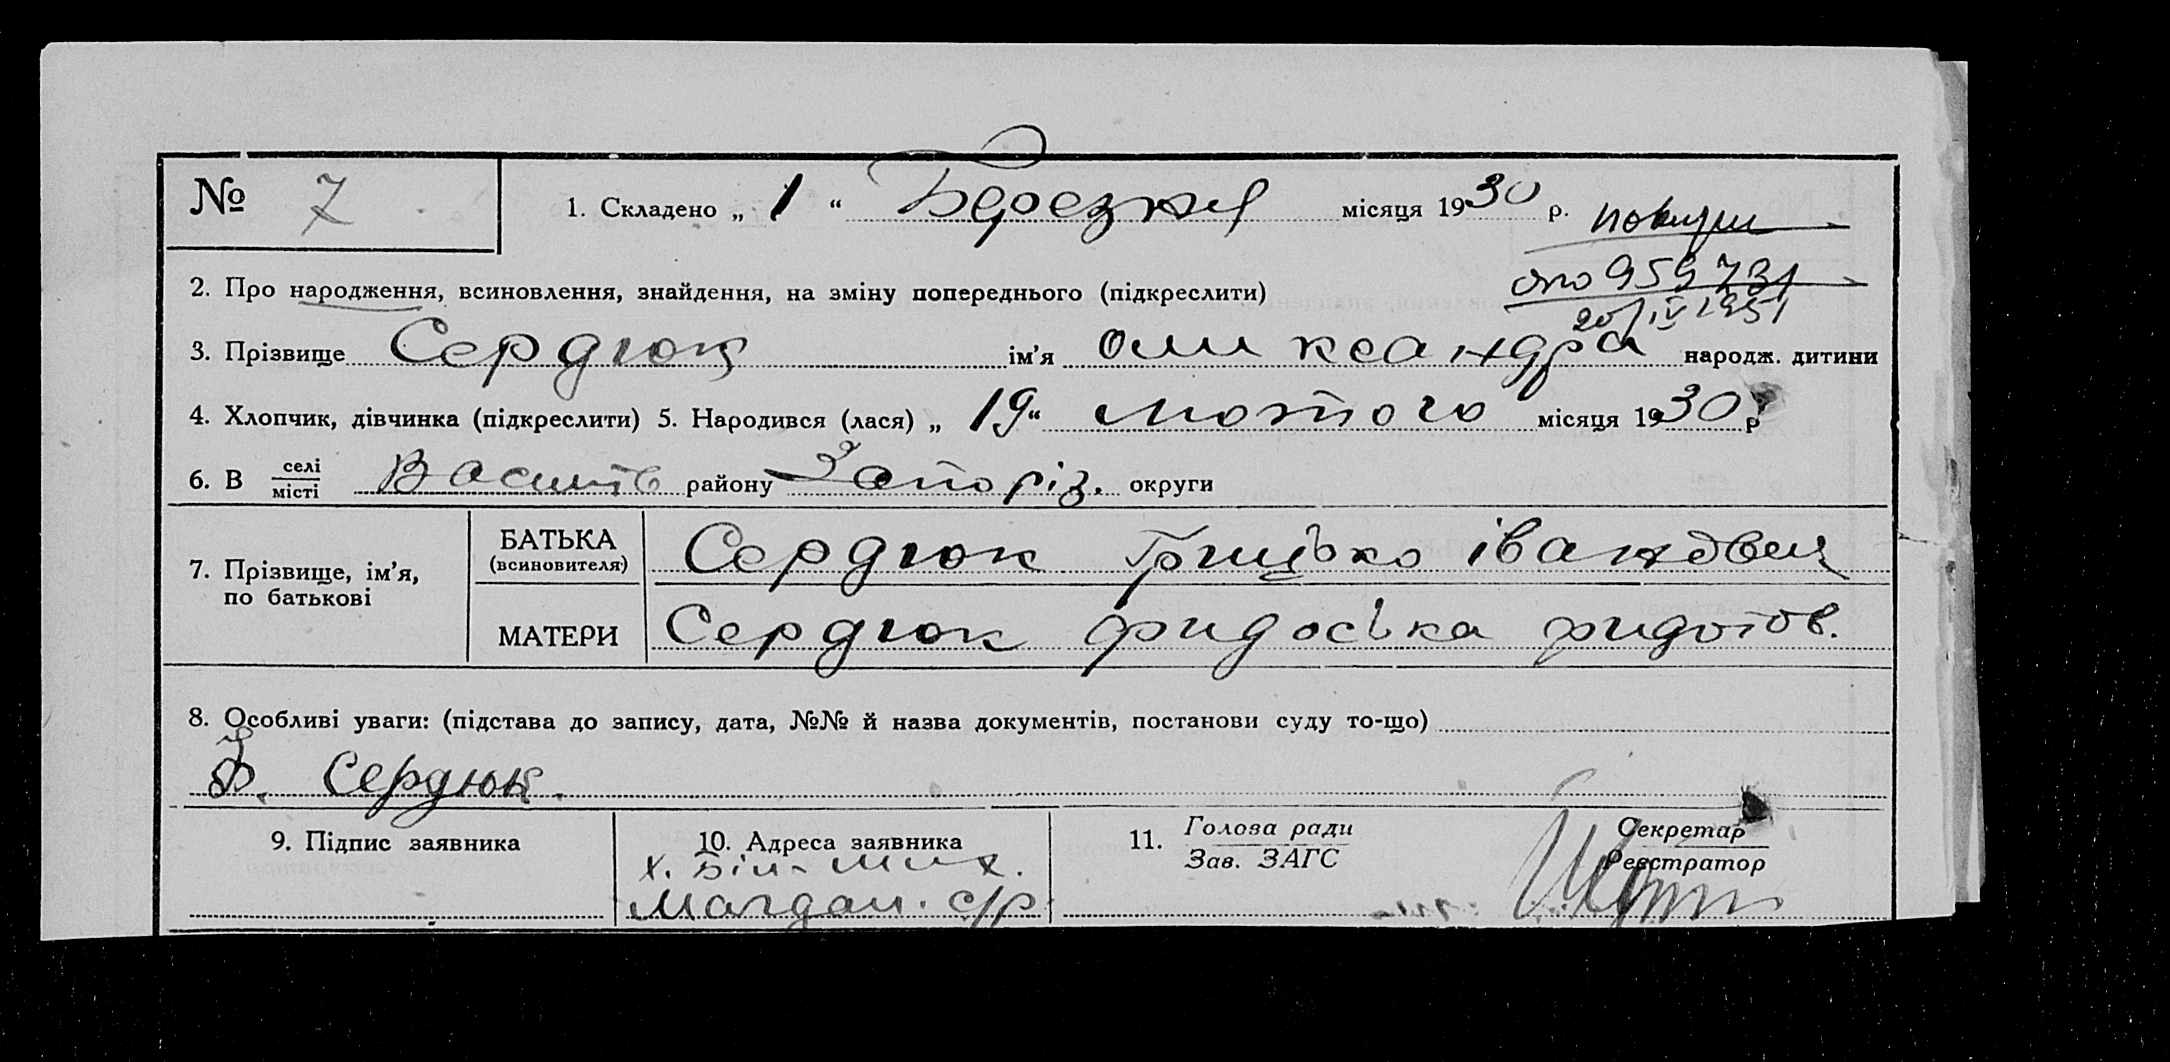 № 7
1. Складено „ 1 “ Березня місяця 1930 р.
2. Про народження, всиновлення, знайдення, на зміну попереднього (підкреслити)
959731
20/IV 1951
3. Прізвище Сердюк ім’я Оликсандра народж. дитини
4. Хлопчик, дівчинка (підкреслити) 5. Народився (лася) „ 19 “ лютого місяця 1930 р
6. В селі місті Васил району Запоріз. округи
7. Прізвище, ім’я, по батькові
БАТЬКА (всиновителя) Сердюк Грицько івановец
МАТЕРИ Сердюк фидоська фидотов.
8. Особливі уваги: (підстава до запису, дата, №№ й назва документів, постанови суду то-що)
Ф. Сердюк.
9. Підпис заявника
10. Адреса заявника
х.
Магдал. с/р
11. Голова ради Секретар
Зав. ЗАГС Реєстратор